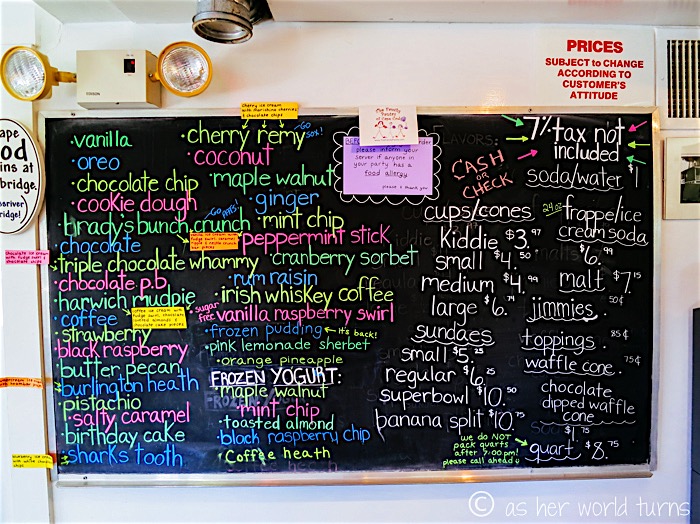 PRICES
SUBJECT to CHANGE
ACCORDING TO
CUSTOMER'S
ATTITUDE
ape
od
ins at
bridge.
sriver
ridge!
cherry ice cream
chocolate chips
please inform your
server if anyone in
your party has a
food allergy
please & thank you
•vanilla
•oreo
•chocolate chip
•cookie dough
•brady's bunch crunch
•chocolate
•triple chocolate whammy
•chocolate p.b.
•harwich mudpie
•coffee
•strawberry
•black raspberry
•butter pecan
•burlington heath
•pistachio
•salty caramel
•birthday cake
•sharks tooth
•cherry remy
GO SOX!
•coconut
•maple walnut
•ginger
GO PATS!
•mint chip
•peppermint stick
•cranberry sorbet
•rum raisin
•irish whiskey coffee
sugar free •vanilla raspberry swirl
•frozen pudding ←it's back!
•pink lemonade sherbet
•orange pineapple
FROZEN YOGURT:
•maple walnut
•mint chip
•toasted almond
•block raspberry chip
•Coffee heath
CASH
or
CHECK
cups/cones
Kiddie $3.97
small $4.50
medium $4.99
large $6.74
sundaes
small $5.25
regular $6.25
superbowl $10.50
banana split $10.75
we do NOT
pack quarts
after 7:00 pm!
please call ahead
7% tax not
included
soda/water $1
24oz frappe/ice
cream soda
$6.99
malt $7.15
jimmies 50¢
toppings 85¢
waffle cone 75¢
chocolate
dipped waffle
cone
$1.75
quart $8.75
© as her world turns